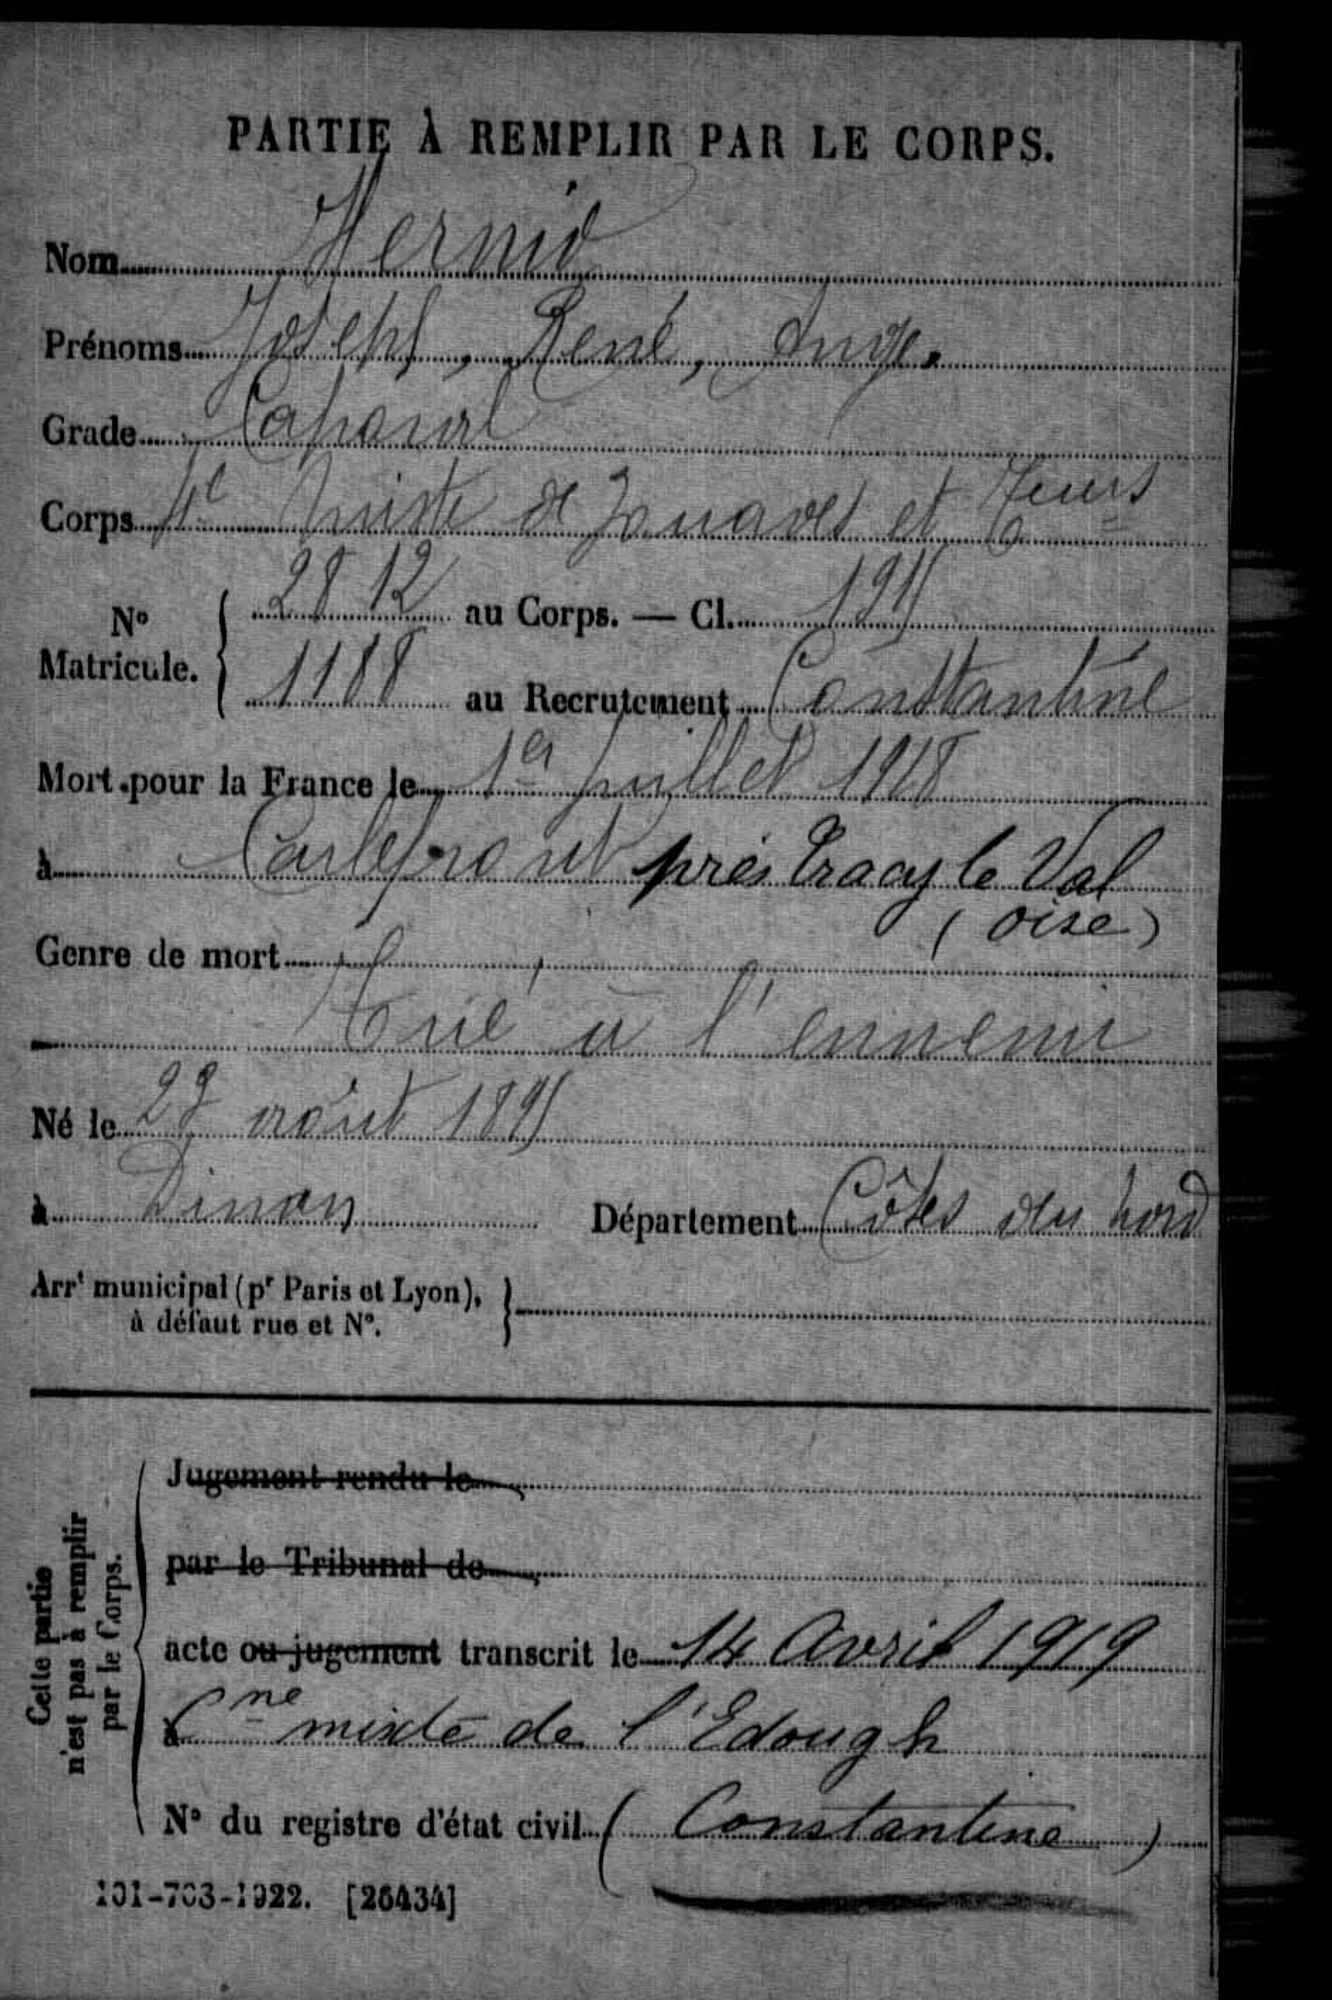 PARTIE À REMPLIR PAR LE CORPS.
Nom Hernio
Prénoms Joseph, René, Ange.
Grade Caporal
Corps 4e mixte de Zouaves et Tirrs
No Matricule. 2812 au Corps. — Cl. 1915
1188 au Recrutement Constantine
Mort pour la France le 1er juillet 1918
à Carlepont près Tracy le Val
(Oise)
Genre de mort
Tué à l'ennemi
Né le août 1895
à Dinan Département Côtes du nord
Arrt municipal (pr Paris et Lyon),
à défaut rue et No.
Cette partie
n'est pas à remplir
par le Corps.
Jugement rendu le
par le Tribunal de
acte ou jugement transcrit le 14 Avril 1919
à Cne mixte de l'Edough
No du registre d'état civil (Constantine)
101-703-1922. [26434]